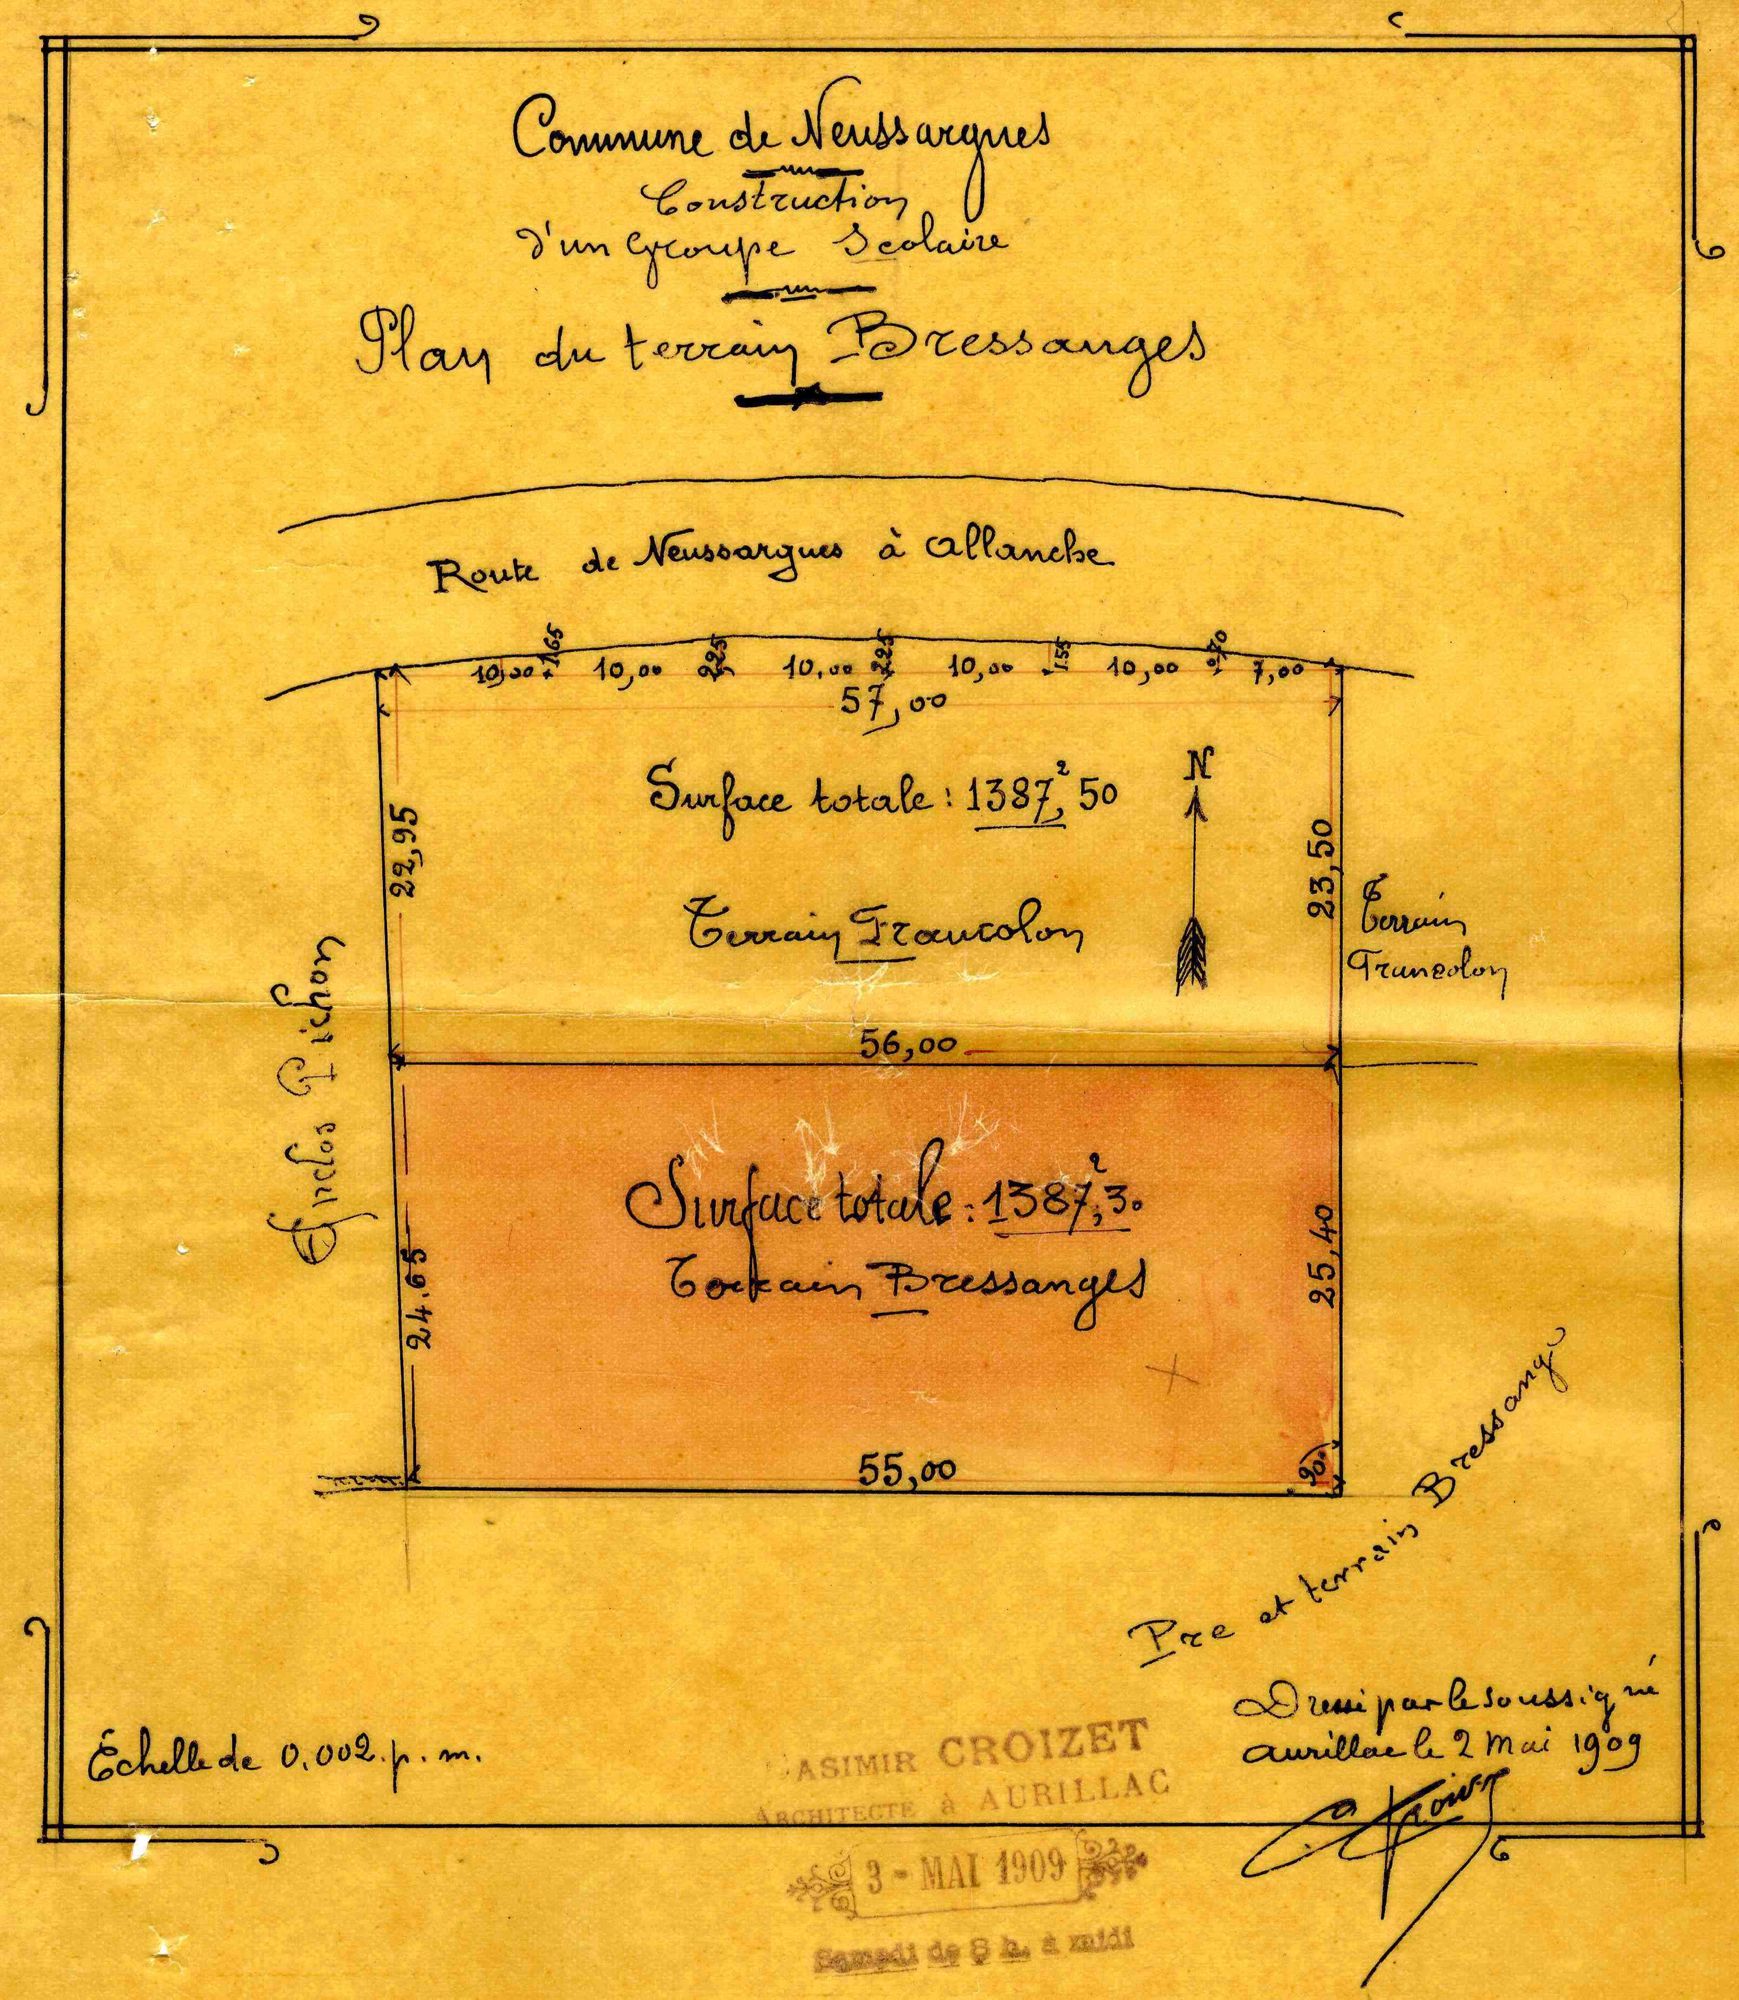 Commune de Neussargues
Construction
d'un Groupe Scolaire
Plan du terrain Bressanges
Route de Neussargues à Allanche
10,00 1,65 10,00 2,25 10,00 2,25 10,00 1,55 10,00 0,70 7,00
57,00
N
Surface totale : 1387,²50
22,95
23,50
Terrain Francolon
Terrain
Francolon
Enclos Pichon
56,00
Surface totale : 1387,²30
Terrain Bressanges
24.65
25,40
55,00
90°
Pre et terrain Bressange
Dressé par le soussigné
Aurillac le 2 Mai 1909
Échelle de 0,002. p. m.
CASIMIR CROIZET
ARCHITECTE à AURILLAC
3 - MAI 1909
Samedi de 8 h. à midi